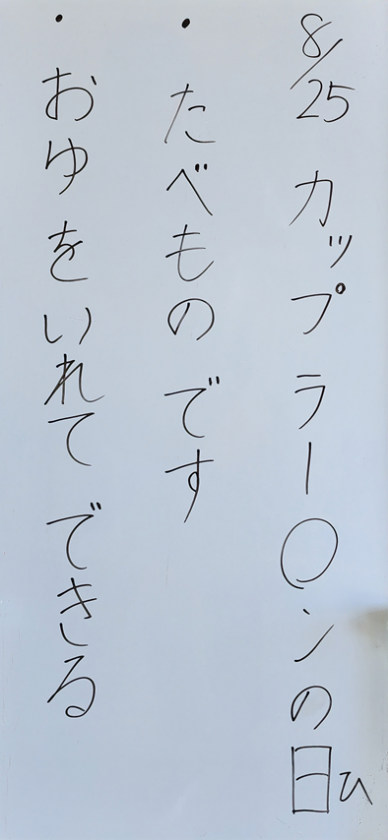 8/25 カップラー○ンの日ひ
・たべものです
・おゆをいれてできる